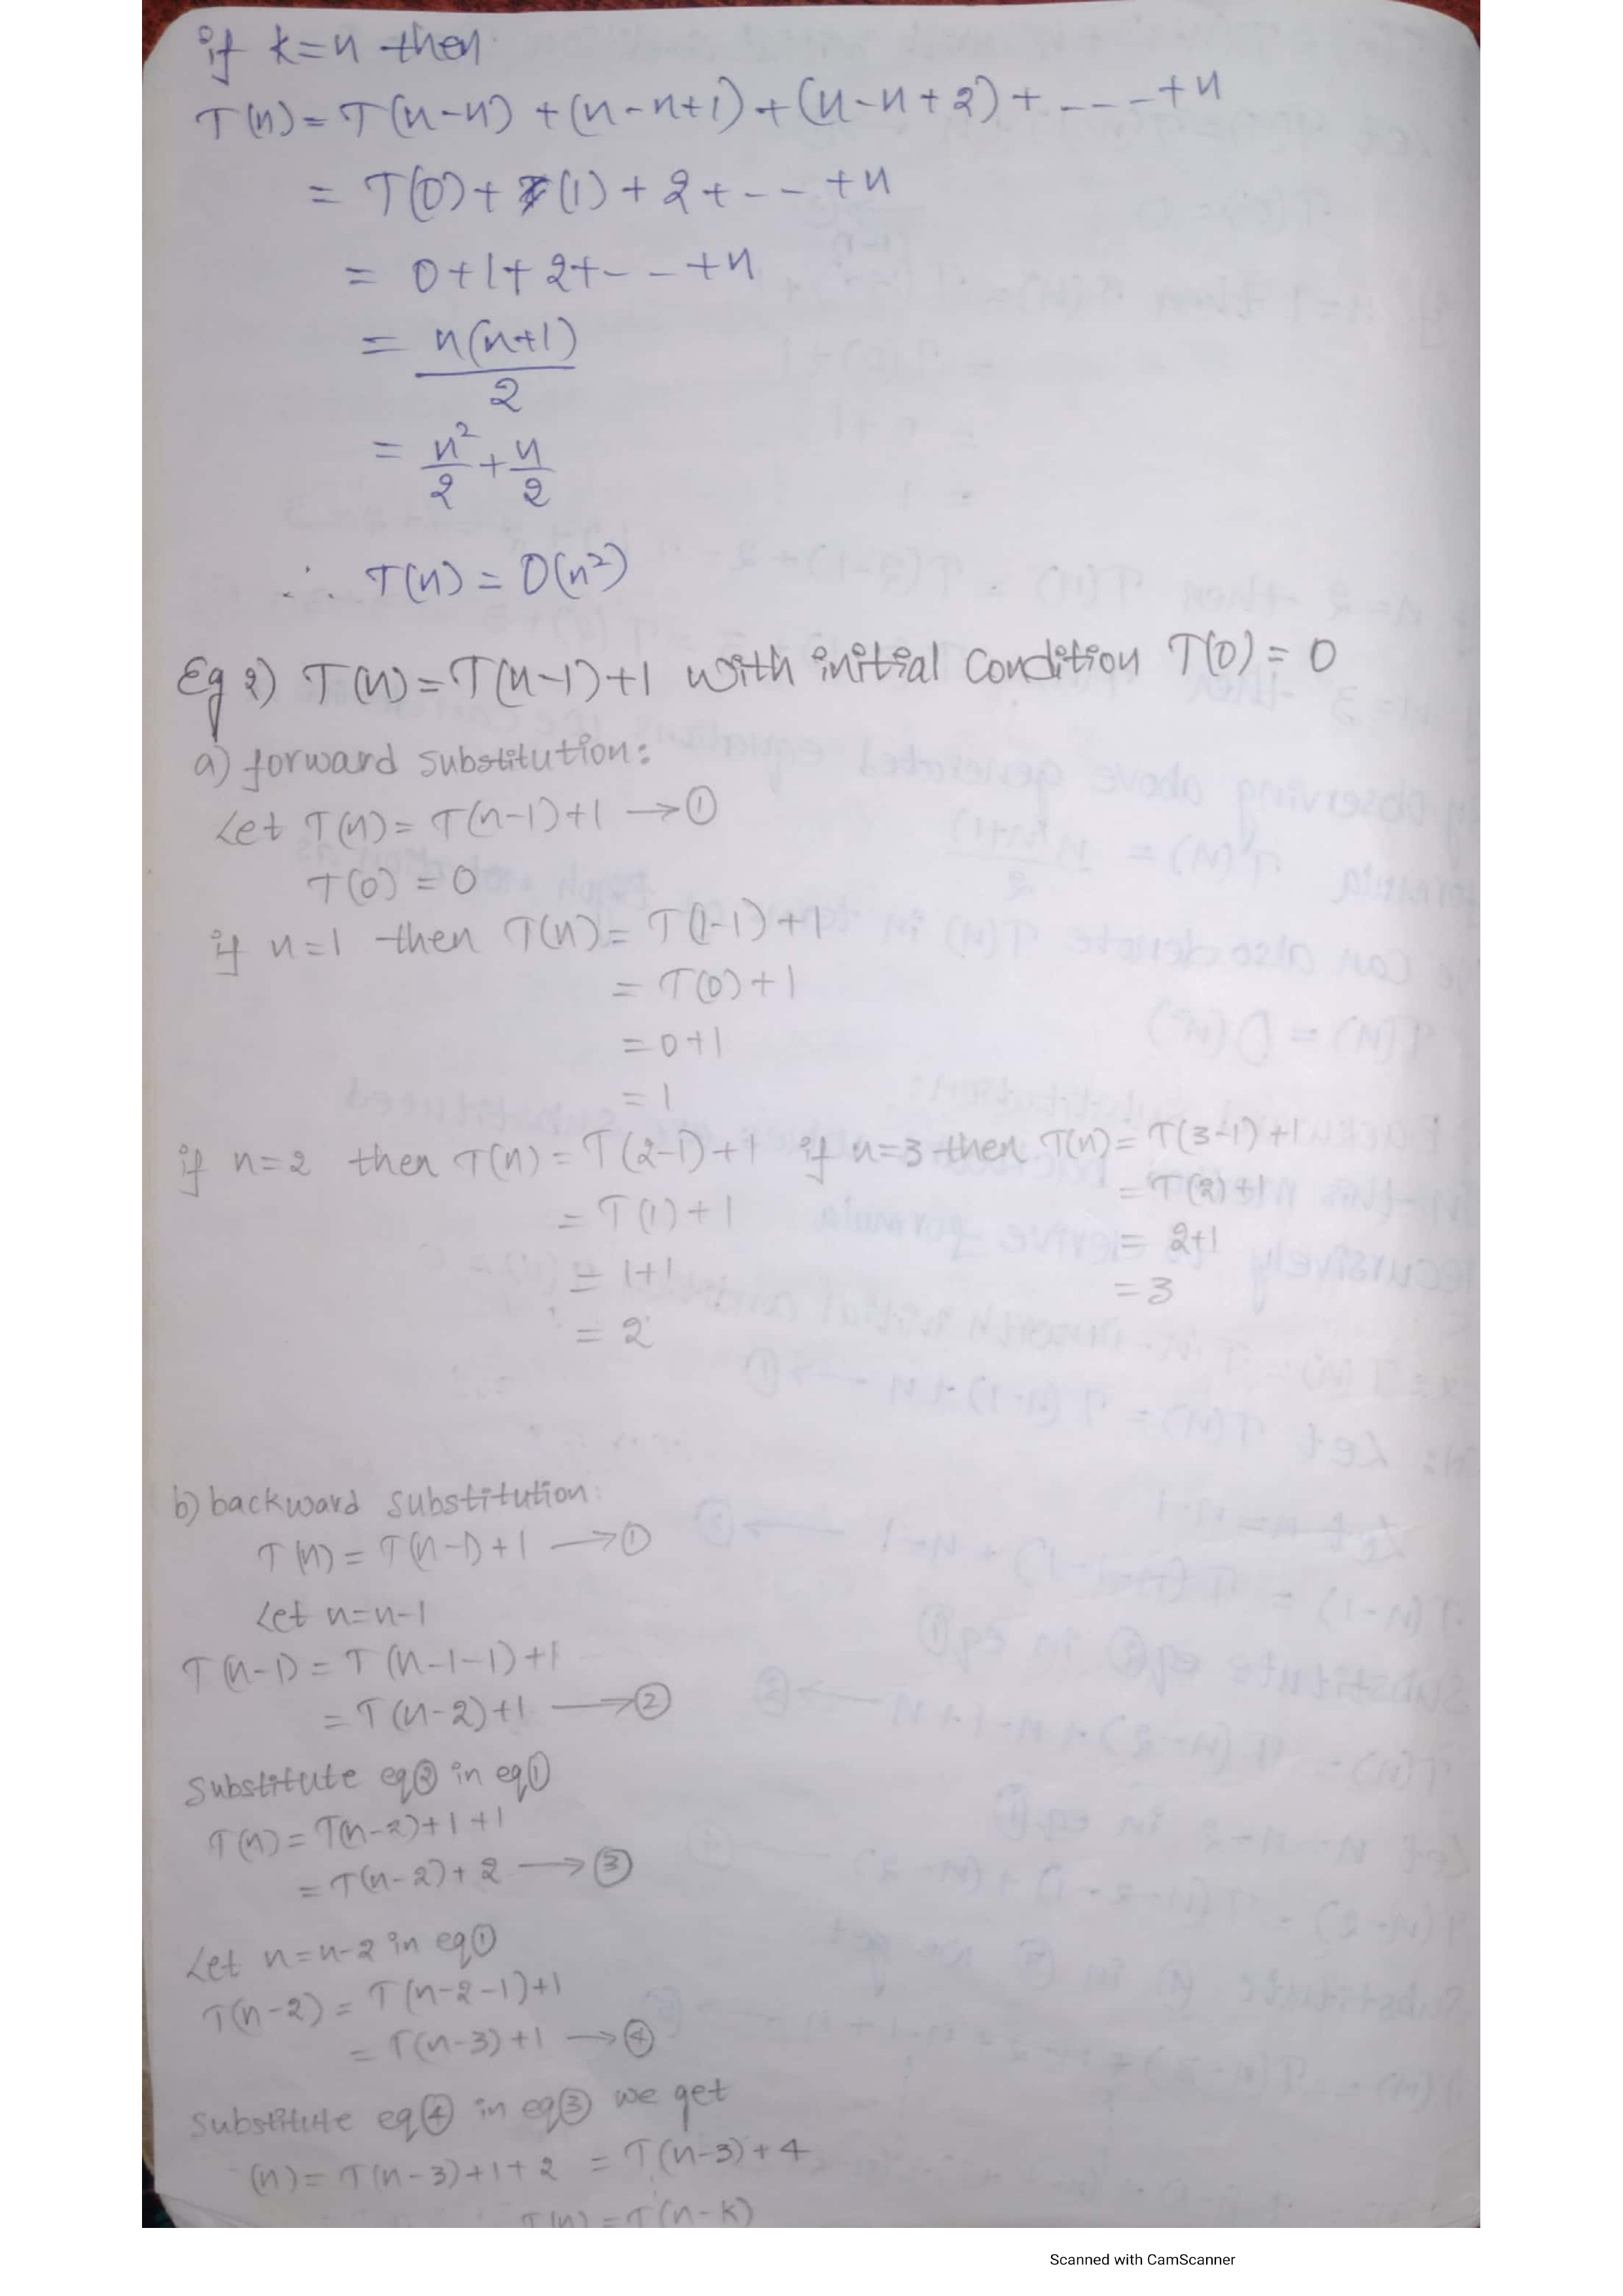 if k=n then
T(n)=T(n-n)+(n-n+1)+(n-n+2)+----+n
= T(0)+(1)+2+---+n
= 0+1+2+---+n
= n(n+1)
2
= n²/2 + n/2
∴ T(n)=O(n²)
Eg 2) T(n)=T(n-1)+1 with initial condition T(0)=0
a) forward substitution:
Let T(n)=T(n-1)+1 →①
T(0)=0
if n=1 then T(n)=T(1-1)+1
=T(0)+1
=0+1
=1
if n=2 then T(n)=T(2-1)+1 if n=3 then T(n)=T(3-1)+1
=T(1)+1 =T(2)+1
=1+1 =2+1
=2 =3
b) backward substitution:
T(n)=T(n-1)+1 →①
Let n=n-1
T(n-1)=T(n-1-1)+1
=T(n-2)+1 →②
Substitute eq② in eq①
T(n)=T(n-2)+1+1
=T(n-2)+2 →③
Let n=n-2 in eq①
T(n-2)=T(n-2-1)+1
=T(n-3)+1 →④
Substitute eq④ in eq③ we get
(n)=T(n-3)+1+2 = T(n-3)+4
T(n)=T(n-k)
Scanned with CamScanner